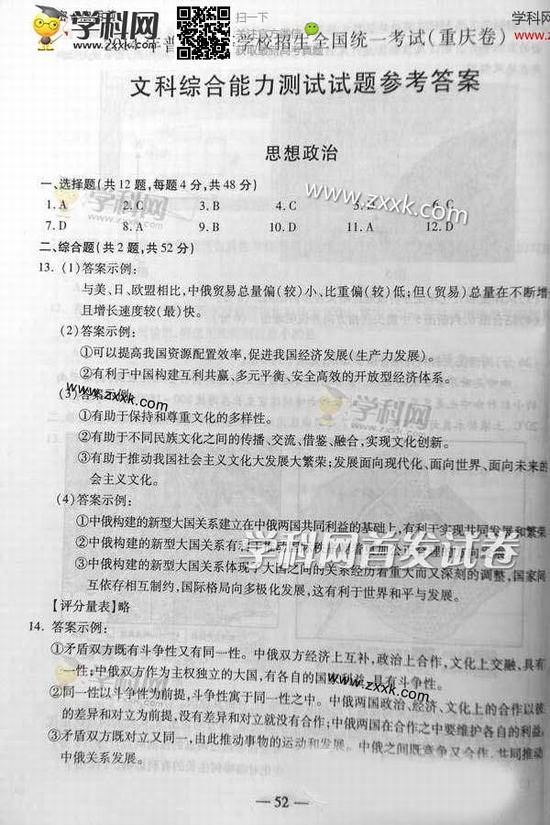 学科网 扫一扫
ZXXK.COM
学科网
www.zxxk.
学校招生全国统一考试(重庆卷)
文科综合能力测试试题参考答案
思想政治
一、选择题(共12题,每题4分,共48分)
www.zxxk.com
1. A 2. C 3. B 4. C 5. 6. C
7. D 8. A 9. B 10. D 11. A 12. D
学科网
二、综合题(共2题,共52分)
13. (1)答案示例:
与美、日、欧盟相比,中俄贸易总量偏(较)小、比重偏(较)低;但(贸易)总量在不断增
且增长速度较(最)快。
(2)答案示例:
①可以提高我国资源配置效率,促进我国经济发展(生产力发展)。
②有利于中国构建互利共赢、多元平衡、安全高效的开放型经济体系。
(3)答案示例:
www.zxxk.com
学科网
①有助于保持和尊重文化的多样性。
②有助于不同民族文化之间的传播、交流、借鉴、融合,实现文化创新。
③有助于推动我国社会主义文化大发展大繁荣;发展面向现代化、面向世界、面向未来的
会主义文化。
(4)答案示例:
①中俄构建的新型大国关系建立在中俄两国共同利益的基础上,有利于实现共同发展和繁荣
②中俄构建的新型大国关系有
学科网首发试卷
③中俄构建的新型大国关系体现了大国之间的关系经历着重大而又深刻的调整,国家间
互依存相互制约,国际格局向多极化发展,这有利于世界和平与发展。
【评分量表】略
14. 答案示例:
①矛盾双方既有斗争性又有同一性。中俄双方经济上互补,政治上合作,文化上交融,具有
一性;中俄双方作为主权独立的大国,有各自的国家利益,具有斗争性。
www.zxxk.com
②同一性以斗争性为前提,斗争性寓于同一性之中。中俄两国政治、经济、文化上的合作以彼
的差异和对立为前提,没有差异和对立就没有合作;中俄两国在合作之中要维护各自的利益
③矛盾双方既对立又同一,由此推动事物的运动和发展。中俄之间既竞争又合作,共同推动
中俄关系发展。
— 52 —